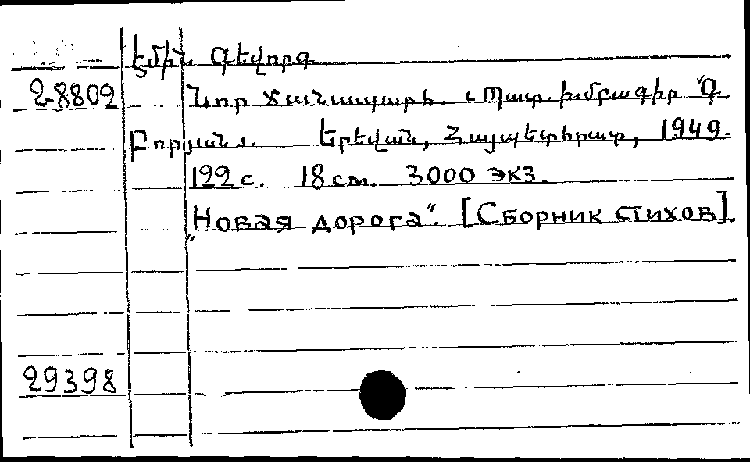 Էմին Գևորգ
28802 Նոր ճանապարհ. Պատ. խմբագիր Գ.
Բորյան. Երևան, Հայպետհրատ, 1949.
122 с. 18 см. 3000 экз.
"Новая дорога". [Сборник стихов]
29398